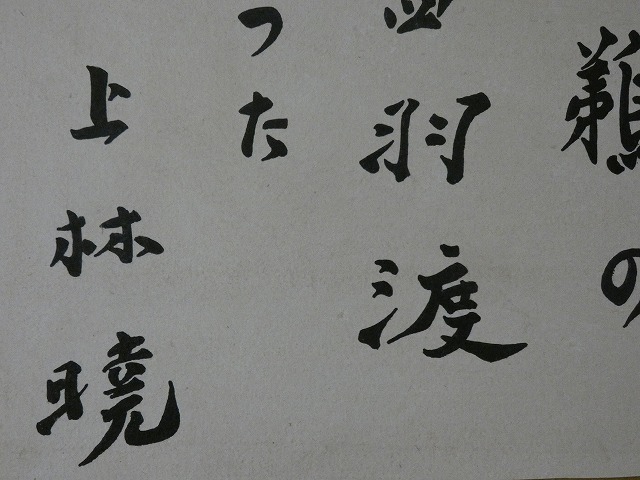 鵜の
四羽渡
った
上林暁